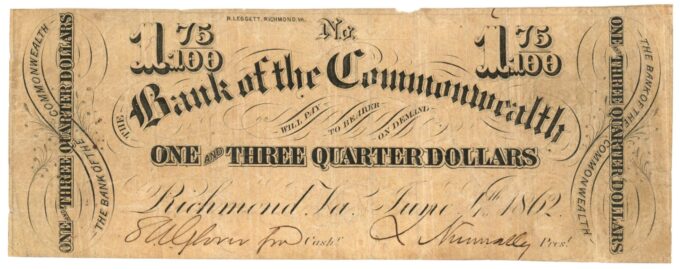 R. LEGGETT, RICHMOND, VA.
No.
1 75/100
1 75/100
THE Bank of the Commonwealth
WILL PAY TO BEARER ON DEMAND
ONE AND THREE QUARTER DOLLARS
Richmond Va. June 4th 1862
Cashr.
L Nunnally Prest.
ONE AND THREE QUARTER DOLLARS
THE BANK OF THE COMMONWEALTH
THE BANK OF THE COMMONWEALTH
ONE AND THREE QUARTER DOLLARS